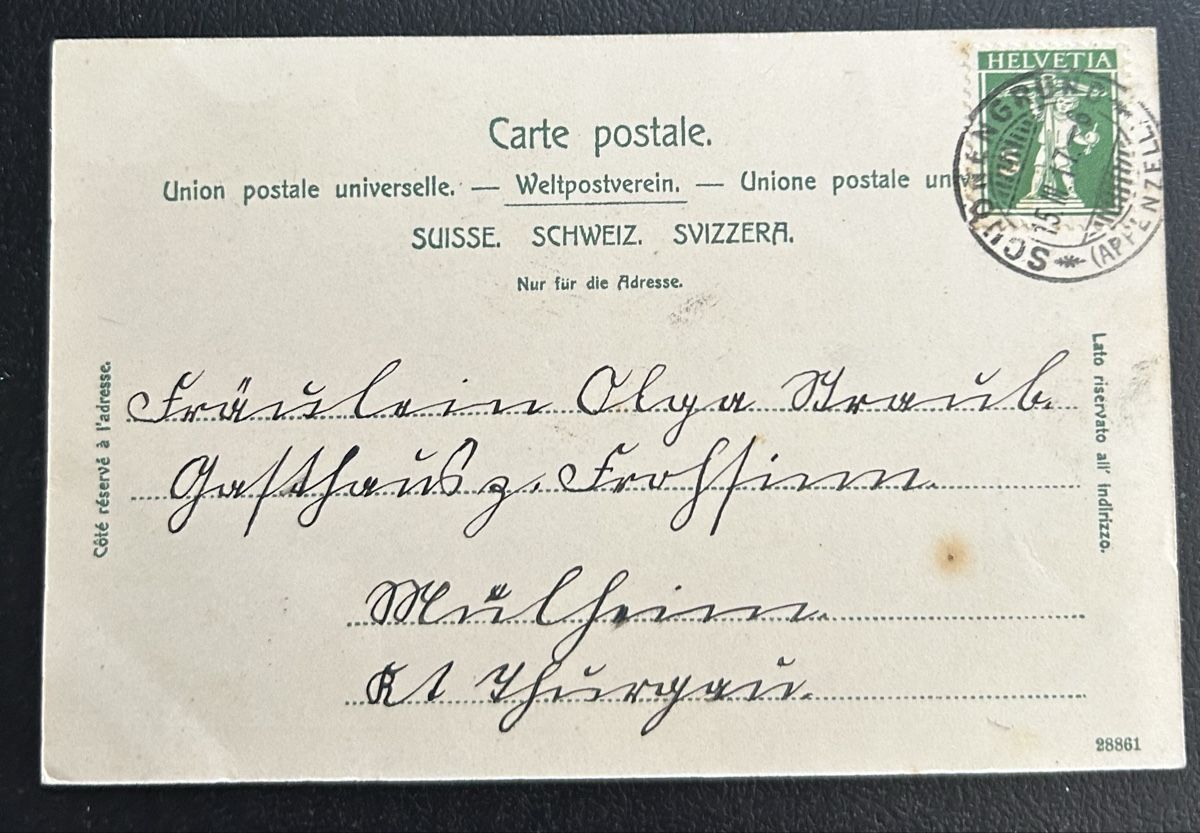 HELVETIA
Carte postale.
Union postale universelle. — Weltpostverein. — Unione postale
SUISSE. SCHWEIZ. SVIZZERA.
Nur für die Adresse.
(APPENZELL)
15. III. 17
Côté réservé à l'adresse.
Lato riservato all' indirizzo.
Fräulein Olga Straub.
Gasthaus z. Frohsinn.
Mülheim.
Kt Thurgau.
28861